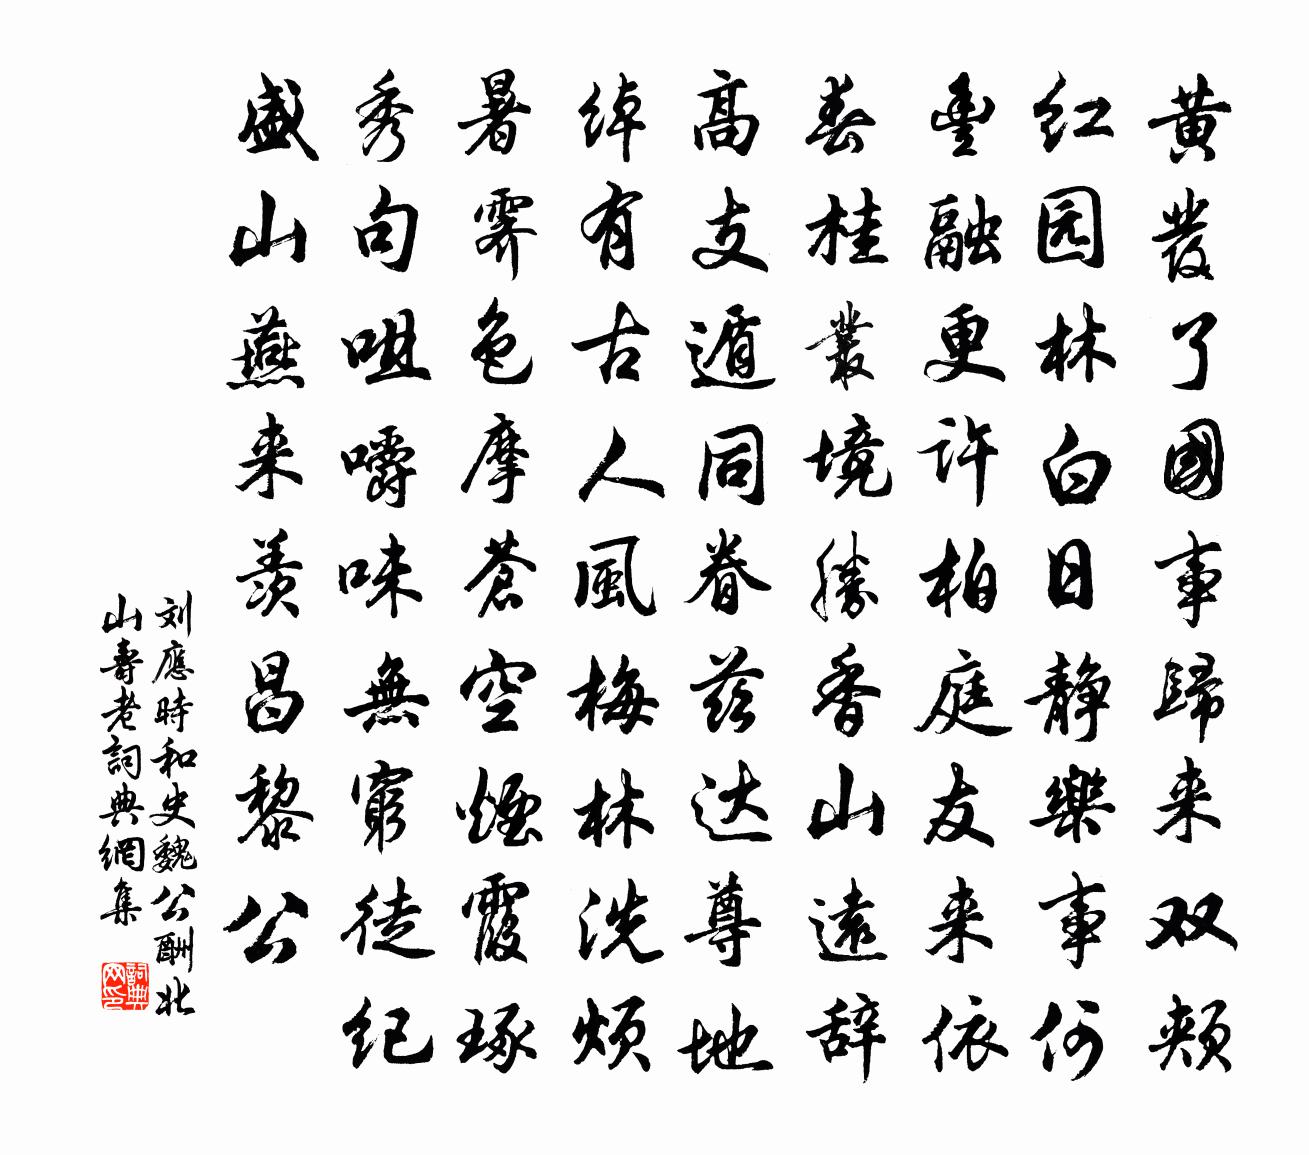 黄發了國事歸来双颊
红园林白日静樂事何
豊融更许柏庭友来依
春桂叢境勝香山遠辞
高支遁同眷茲达尊地
绰有古人風梅林洗烦
暑霁色摩苍空煙霞琢
秀句咀嚼味無窮徒纪
盛山燕来羡昌黎公
刘應時和史魏公酬北
山壽老詞典網集
詞典网印